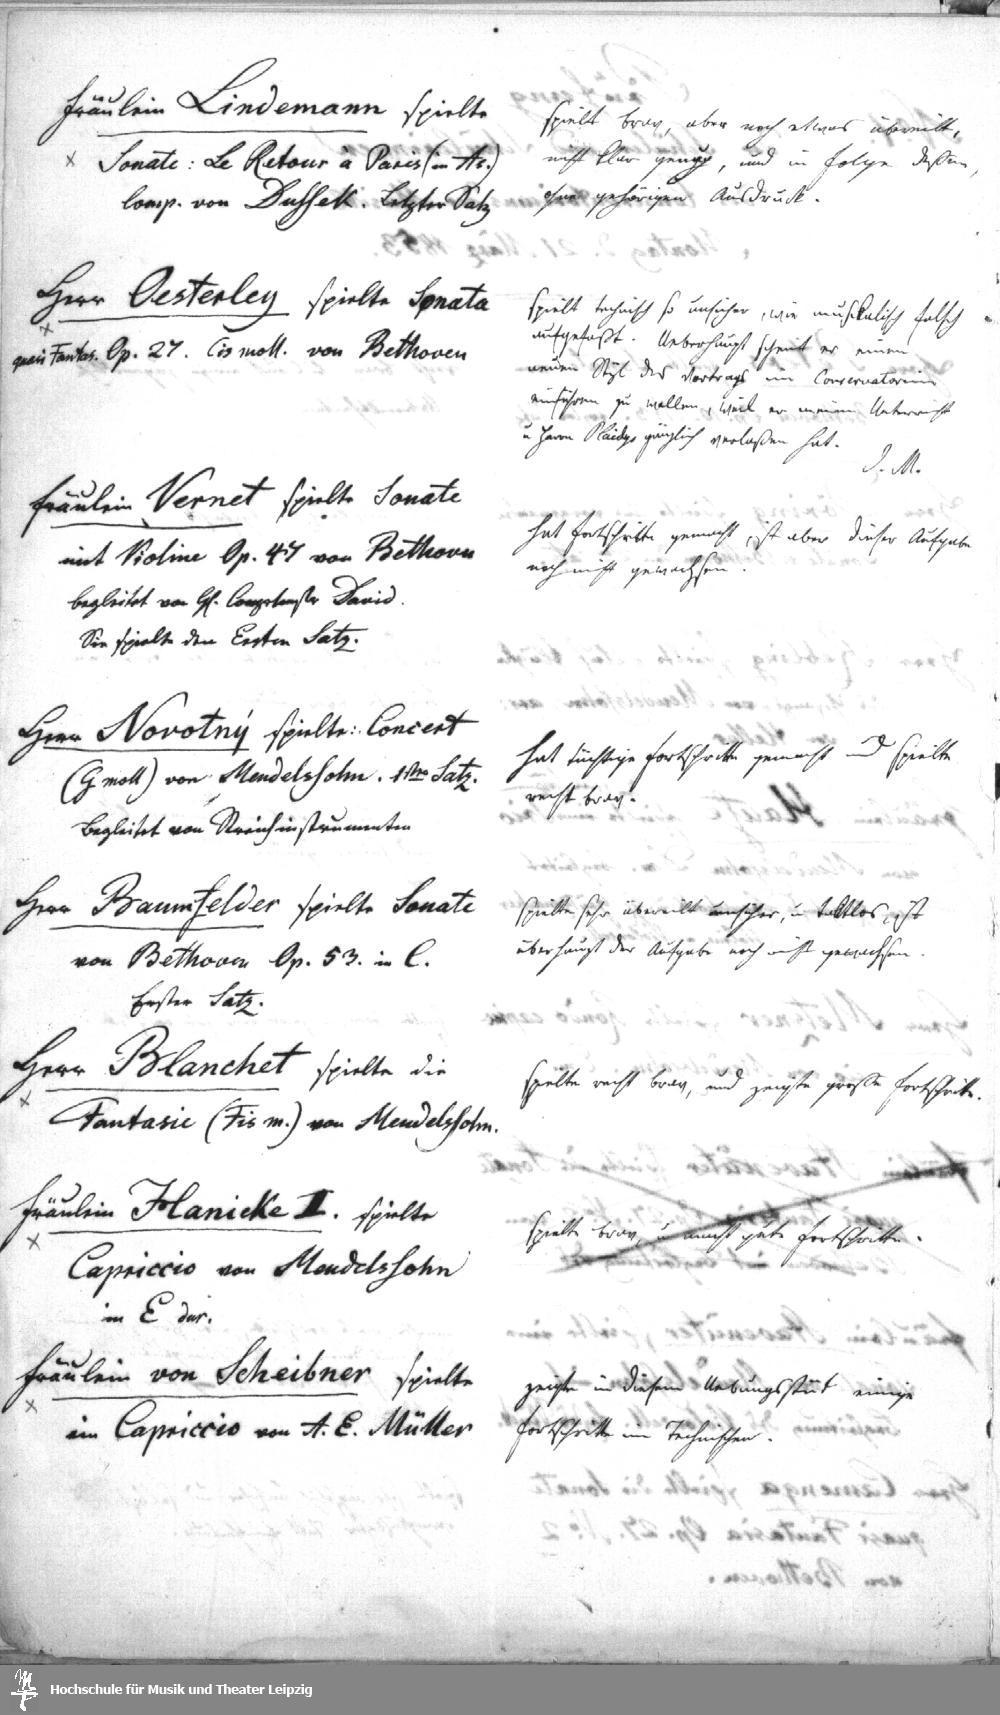 Fräulein Lindemann spielte
Sonate: Le Retour à Paris (in As.)
comp. von Dussek. Letzter Satz
spielt brav, aber noch etwas übereilt,
nicht klar genug, und in Folge dessen,
ohne gehörigen Ausdruck.
Herr Oesterley spielte Sonata
quasi Fantas. Op. 27. Cis moll. von Bethoven
spielt technisch so unsicher, wie musikalisch falsch
aufgefaßt. Ueberhaupt scheint er einen
neuen Styl des Vortrags im Conservatorium
einführen zu wollen, weil er meinen Unterricht
u Herrn Plaidys gänzlich verlaßen hat.
J. M.
Fräulein Vernet spielte Sonate
mit Violine Op. 47 von Bethoven
begleitet von H. Concertmstr David.
Sie spielte den Ersten Satz.
hat Fortschritte gemacht, ist aber dieser Aufgabe
noch nicht gewachsen.
Herr Novotný spielte: Concert
(G moll) von Mendelssohn. 1ster Satz.
Begleitet von Streichinstrumenten
hat tüchtige Fortschritte gemacht und spielte
recht brav.
Herr Baumfelder spielte Sonate
von Bethoven Op. 53. in C.
Erster Satz.
spielte sehr übereilt unsicher, u taktlos, ist
überhaupt der Aufgabe noch nicht gewachsen.
Herr Blanchet spielte die
Fantasie (Fis m.) von Mendelssohn.
spielte recht brav, und zeigte große Fortschritte.
Fräulein Hanicke II. spielte
Capriccio von Mendelssohn
in E dur.
spielte brav, u macht gute Fortschritte.
Fräulein von Scheibner spielte
ein Capriccio von A. E. Müller
zeigte in diesem Uebungsstück einige
Fortschritte im Technischen.
Hochschule für Musik und Theater Leipzig